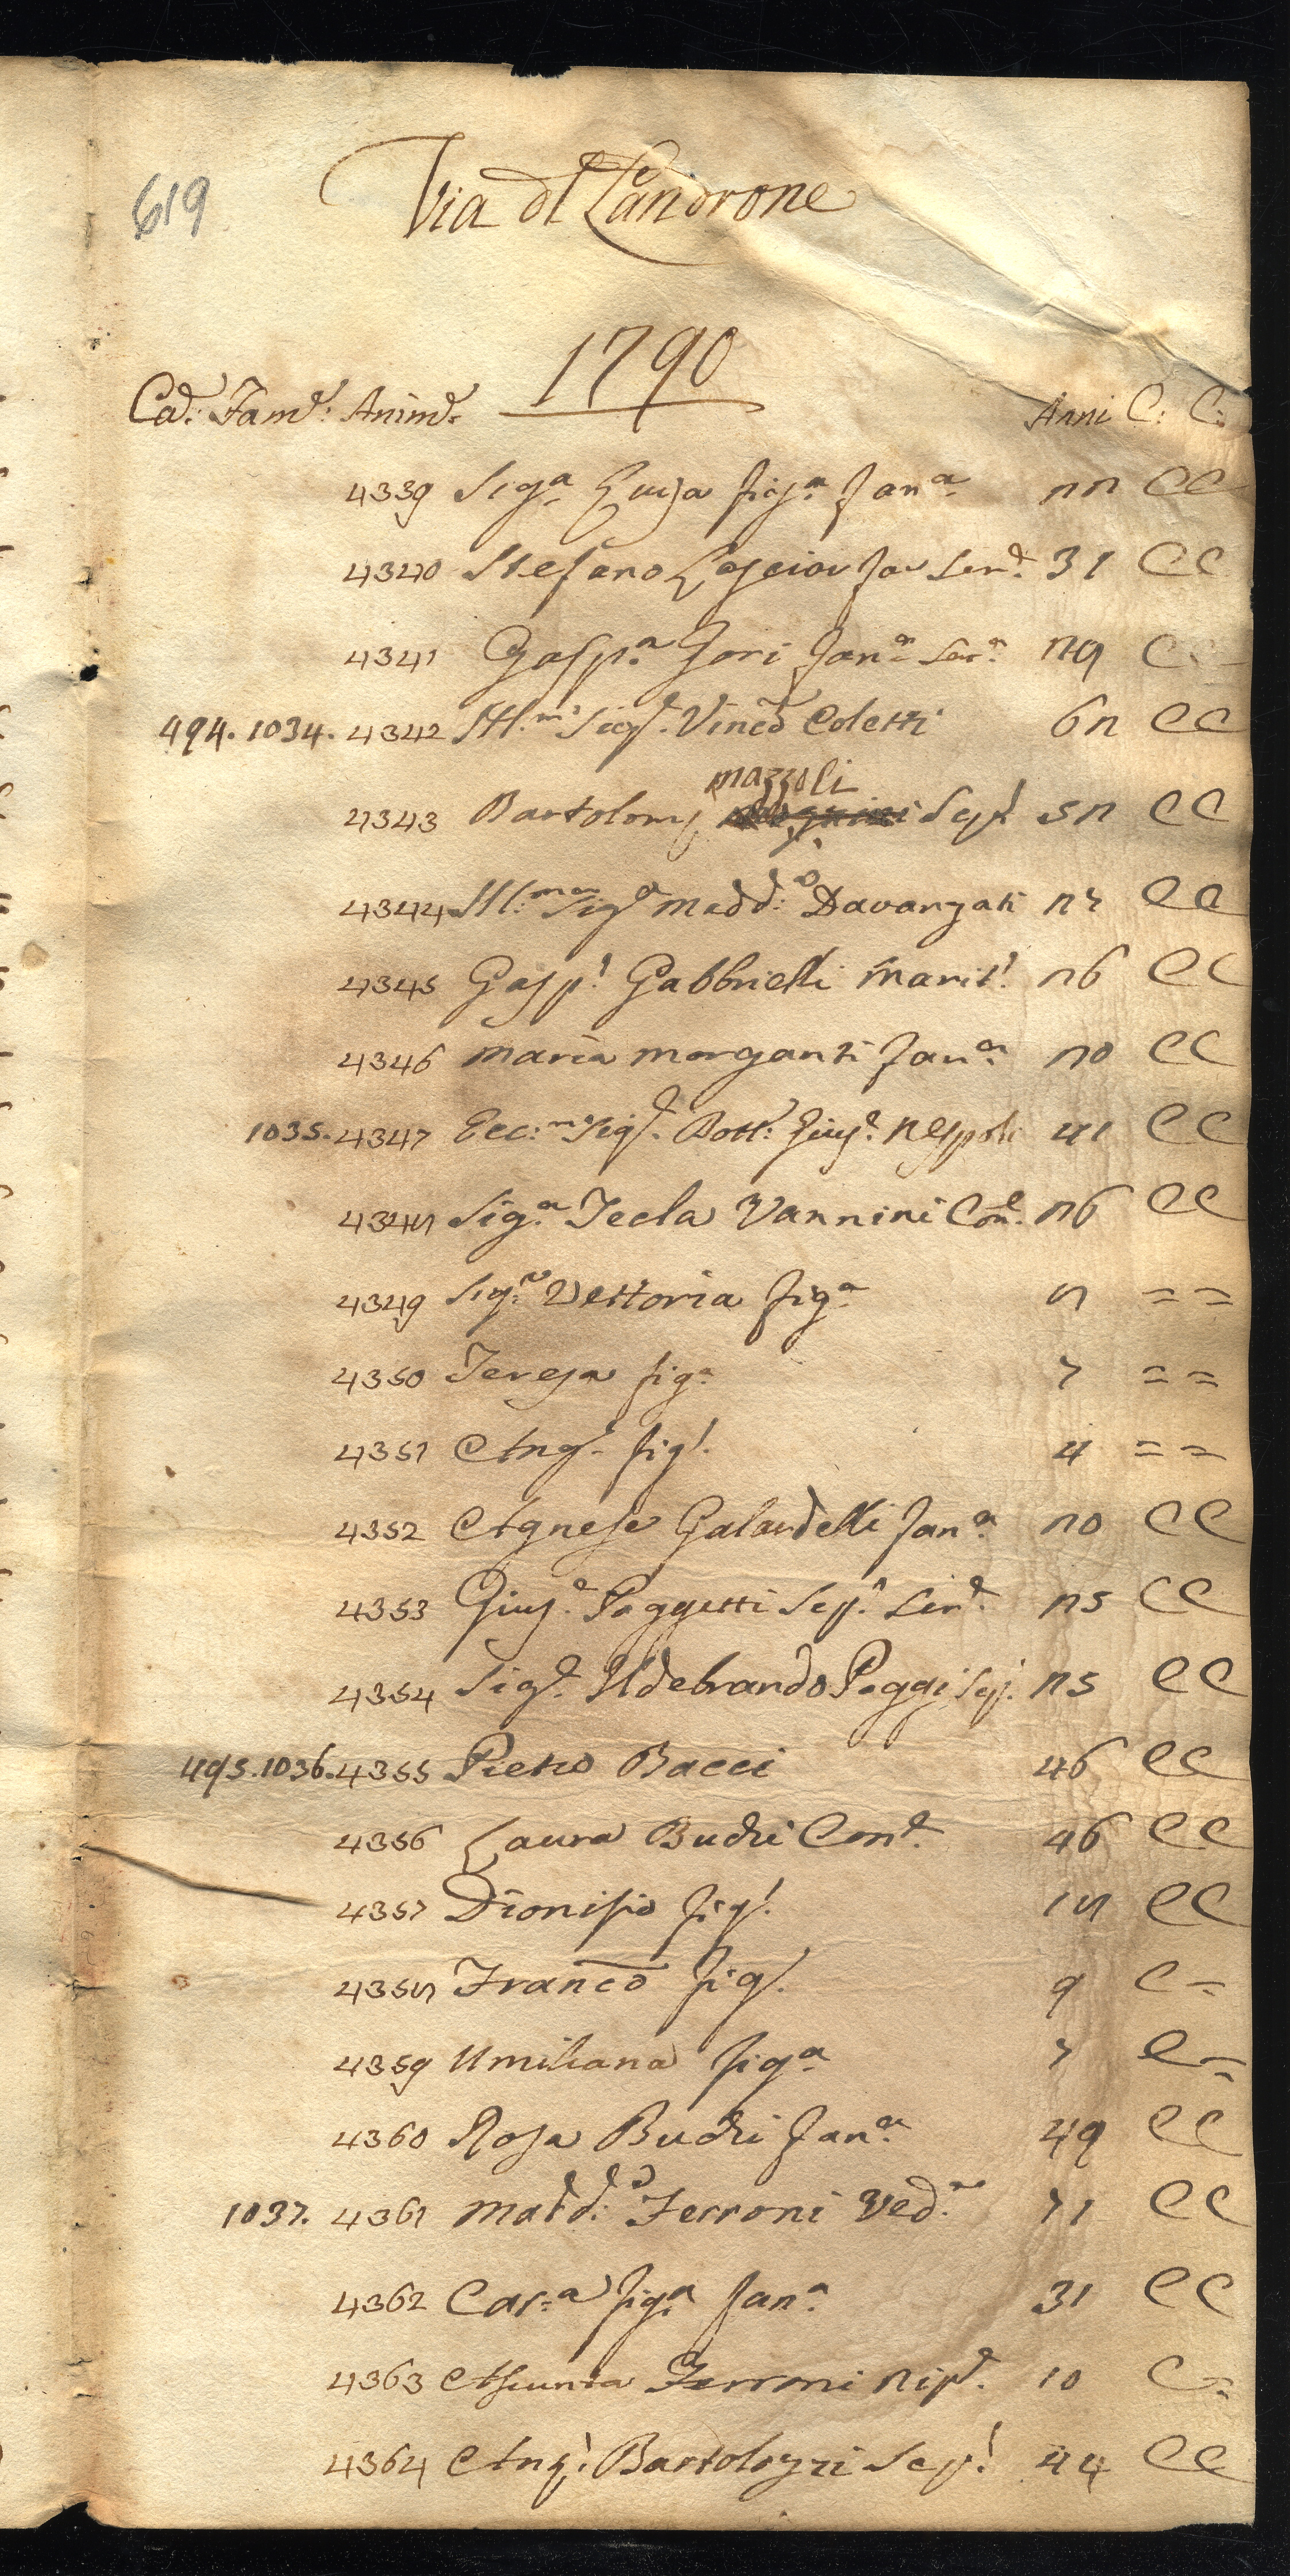 619
Via dl Landrone
1790
Cad: Famd: Animd: Anni C: C:
4339 Siga Luisa figa Fana 22 CC
4340 Stefano Casciov Fav Serd 31 CC
4341 Gaspa Gori Fana Sera 29 C
494. 1034. 4342 Ill.mo Sige. Vinco Coletti 62 CC
mazzoli
4343 Bartolom Sepl 52 CC
4344 Ill:ma Siga Madd:a Davanzati 22 CC
4345 Gaspe Gabbrielli Marit! 26 CC
4346 Maria Morganti Fana 20 CC
1035. 4347 Ecc:mo Sige. Dott: Giuse: Nespoli 41 CC
4348 Sig.a Tecla Vannini Cone. 26 CC
4349 Sig.a Vettoria figa 8 = =
4350 Teresa figa 7 = =
4351 Ange figl. 4 = =
4352 Agnese Galardelli Fana 20 CC
4353 Giuse. Poggetti Sep! Serd. 25 CC
4354 Sige. Ildebrando Poggi Sep. 25 CC
495. 1036. 4355 Pietro Bacci 46 CC
4356 Laura Budri Cone. 46 CC
4357 Dionisio figl. 18 CC
4358 Franco figl. 9 C =
4359 Umiliana figa 7 C =
4360 Rosa Budri Fana 49 CC
1037. 4361 Madd:a Ferroni Veda 71 CC
4362 Car:a figa Fana 31 CC
4363 Assunta Ferroni Nipe. 10 C =
4364 Ang! Bartolozzi Sep! 44 CC